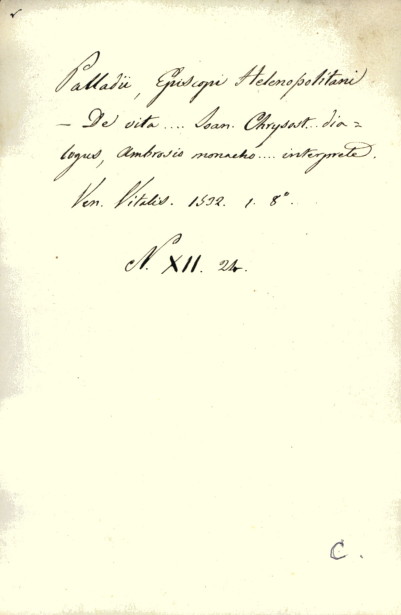 Palladii, Episcopi Helenopolitani
— De vita .... Joan. Chrysost... dia=
logus, Ambrosio monacho .... interprete.
Ven. Vitalis. 1532. 1. 8°.
N. XII. 24.
C.